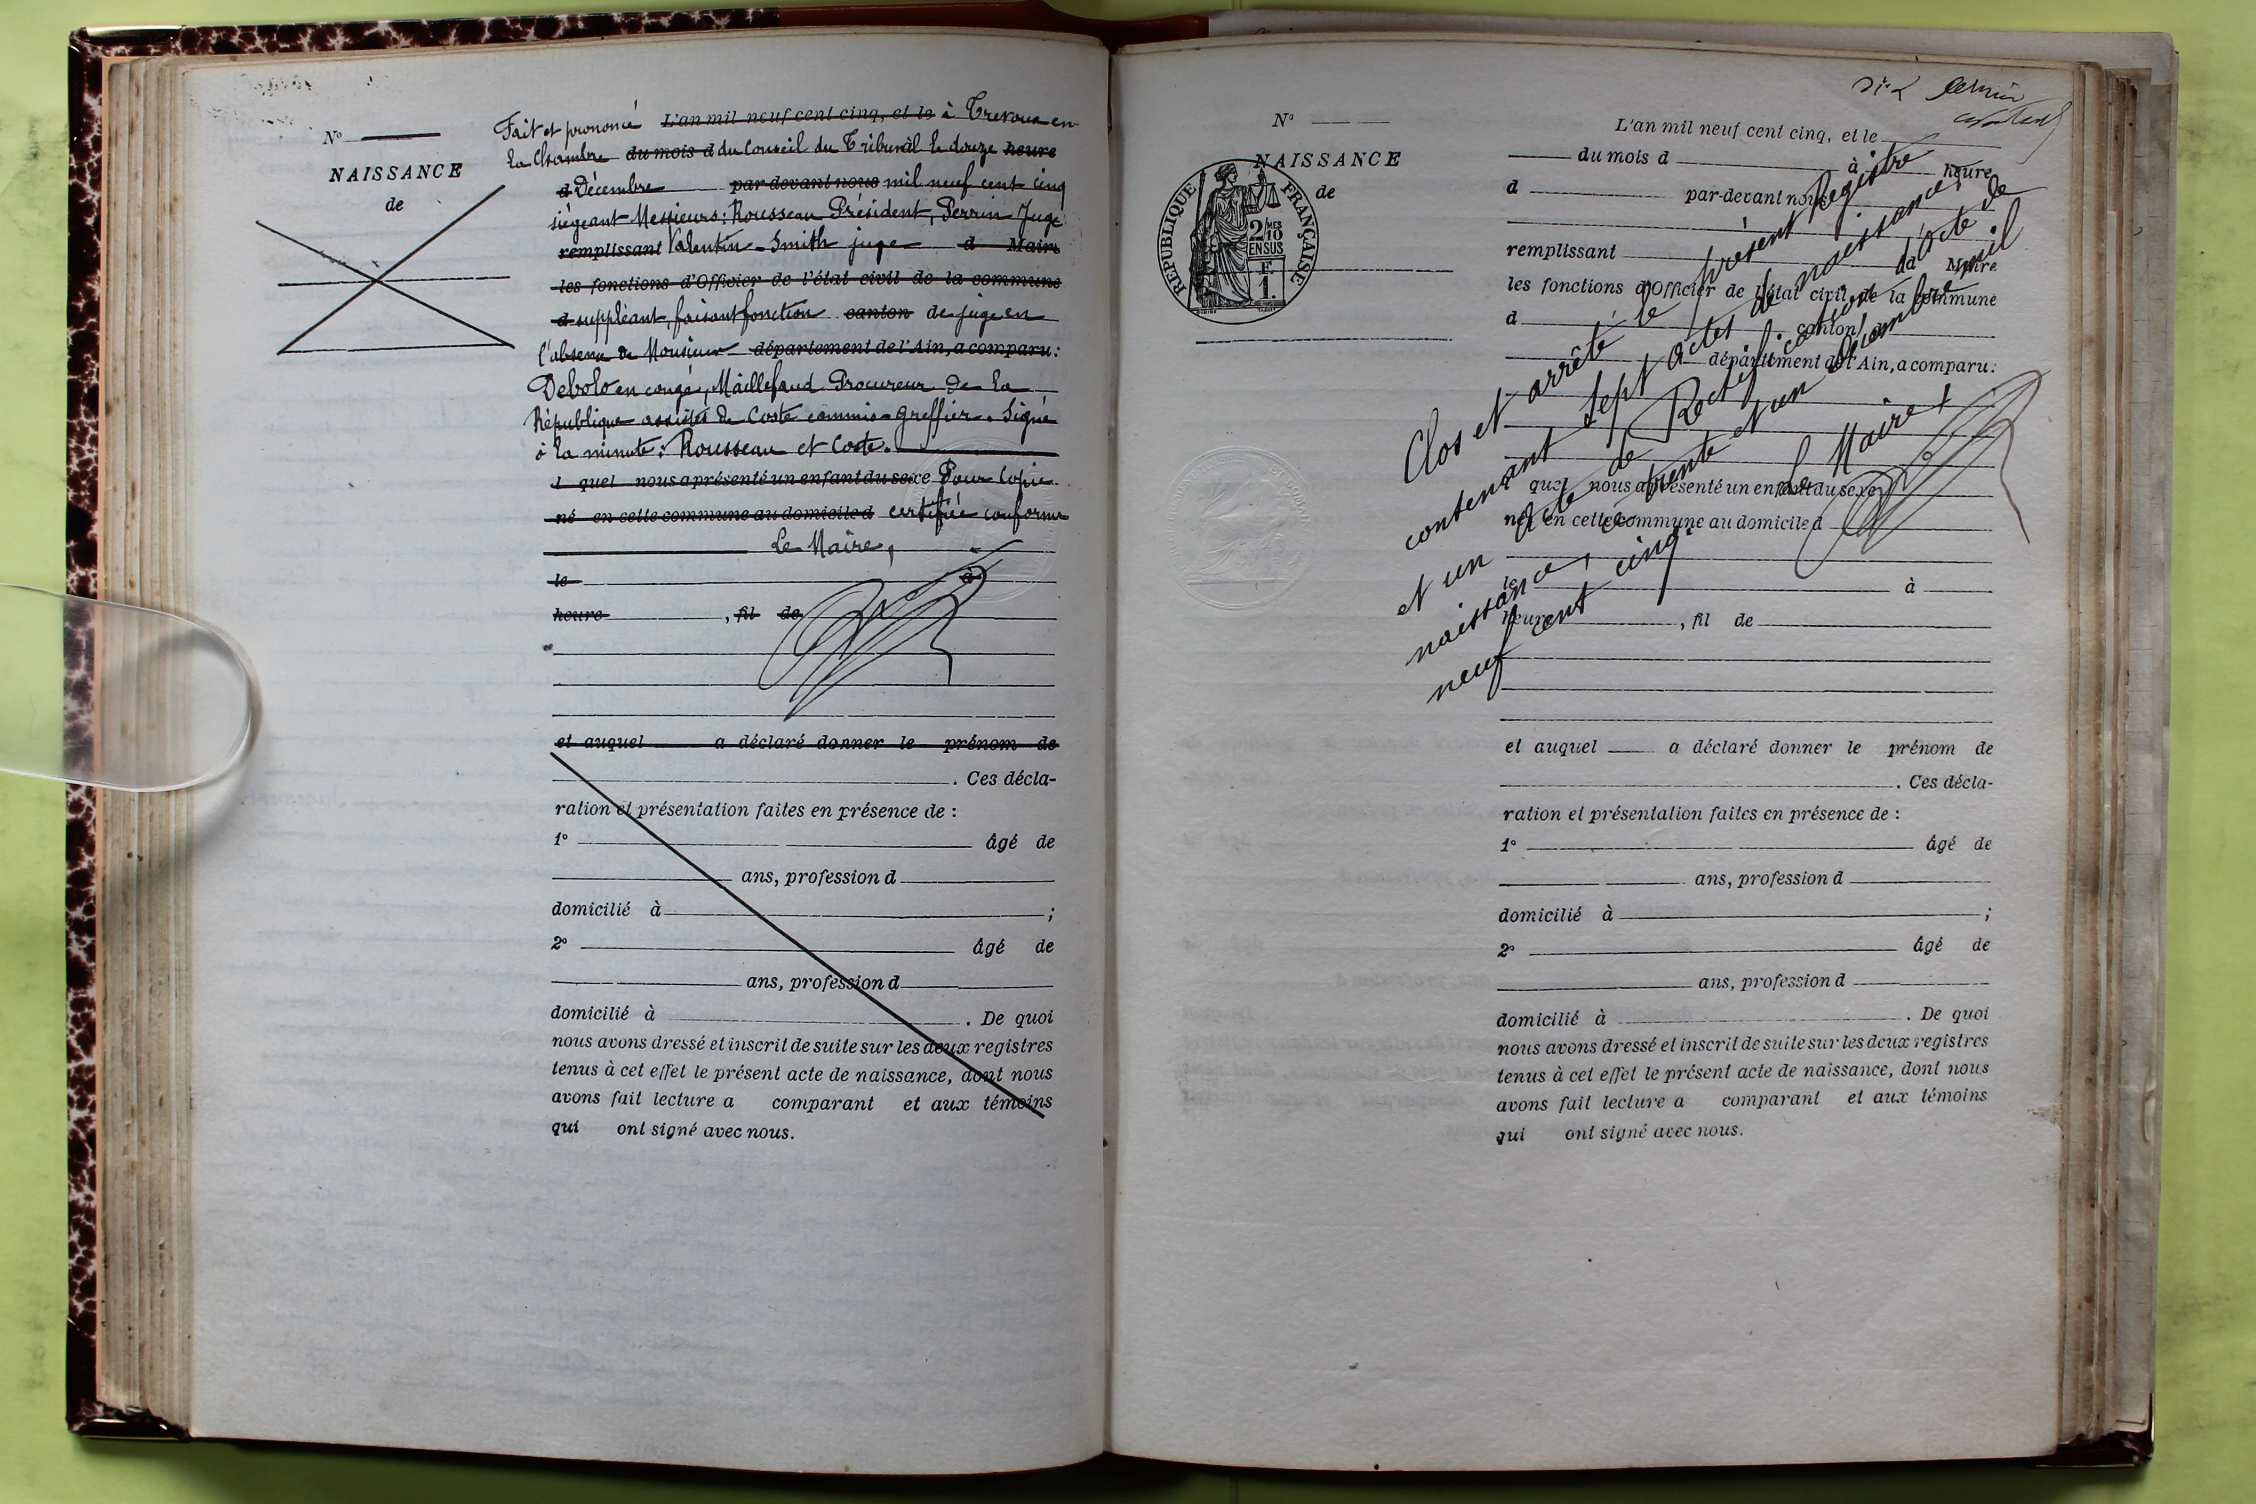 N°
NAISSANCE
de
Fait et prononcé L'an mil neuf cent cinq, et le à Trévoux en
la Chambre du mois d du Conseil du Tribunal le douze heure
d Décembre par-devant nous mil neuf cent cinq
siégeant Messieurs : Rousseau Président, Perrin Juge
remplissant Valentin-Smith juge d Maire
les fonctions d'Officier de l'état civil de la commune
d suppléant, faisant fonction canton de juge en
l'absence de Monsieur département de l'Ain, a comparu :
Debolo en congé, Maillefaud Procureur de la
République assistés de Coste commis-Greffier. Signé
à la minute : Rousseau et Coste.
l quel nous a présenté un enfant du sexe Pour Copie
né en cette commune au domicile d certifiée conforme
Le Maire,
le à
heure , fil de
et auquel a déclaré donner le prénom de
. Ces décla-
ration et présentation faites en présence de :
1° âgé de
ans, profession d
domicilié à ;
2° âgé de
ans, profession d
domicilié à . De quoi
nous avons dressé et inscrit de suite sur les deux registres
tenus à cet effet le présent acte de naissance, dont nous
avons fait lecture a comparant et aux témoins
qui ont signé avec nous.
N°
NAISSANCE
de
RÉPUBLIQUE FRANÇAISE
2/10 MES
EN SUS
F
1.
L'an mil neuf cent cinq, et le
du mois d à heure
d par-devant nous
remplissant d Maire
les fonctions d'Officier de l'état civil de la commune
d canton
département de l'Ain, a comparu :
quel nous a présenté un enfant du sexe
né en cette commune au domicile d
le à
heure , fil de
Clos et arrêté le présent Registre
contenant sept actes de naissance,
et un acte de Rectification d'acte de
naissance, ce trente et un Décembre mil
neuf cent cinq.
Le Maire,
et auquel a déclaré donner le prénom de
. Ces décla-
ration et présentation faites en présence de :
1° âgé de
ans, profession d
domicilié à ;
2° âgé de
ans, profession d
domicilié à . De quoi
nous avons dressé et inscrit de suite sur les deux registres
tenus à cet effet le présent acte de naissance, dont nous
avons fait lecture a comparant et aux témoins
qui ont signé avec nous.